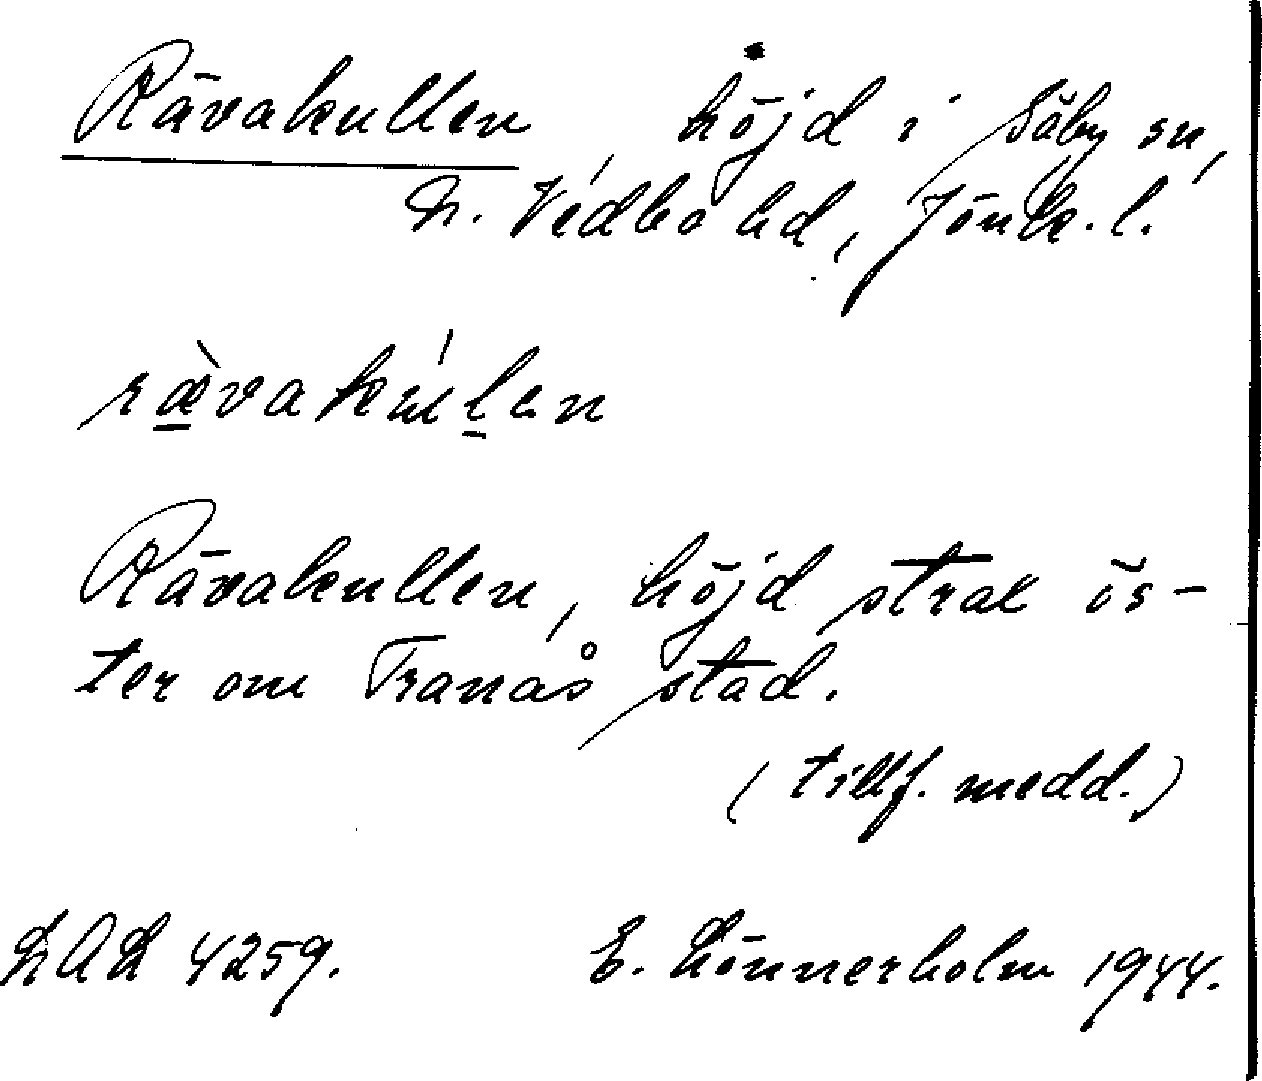 Rävakullen, höjd i Säby sn,
N. Vedbo hd, Jönk. l.
rævakulen
Rävakullen, höjd strax ös-
ter om Tranås stad.
(tillf. medd.)
LAL 4259. E. Lönnerholm 1944.